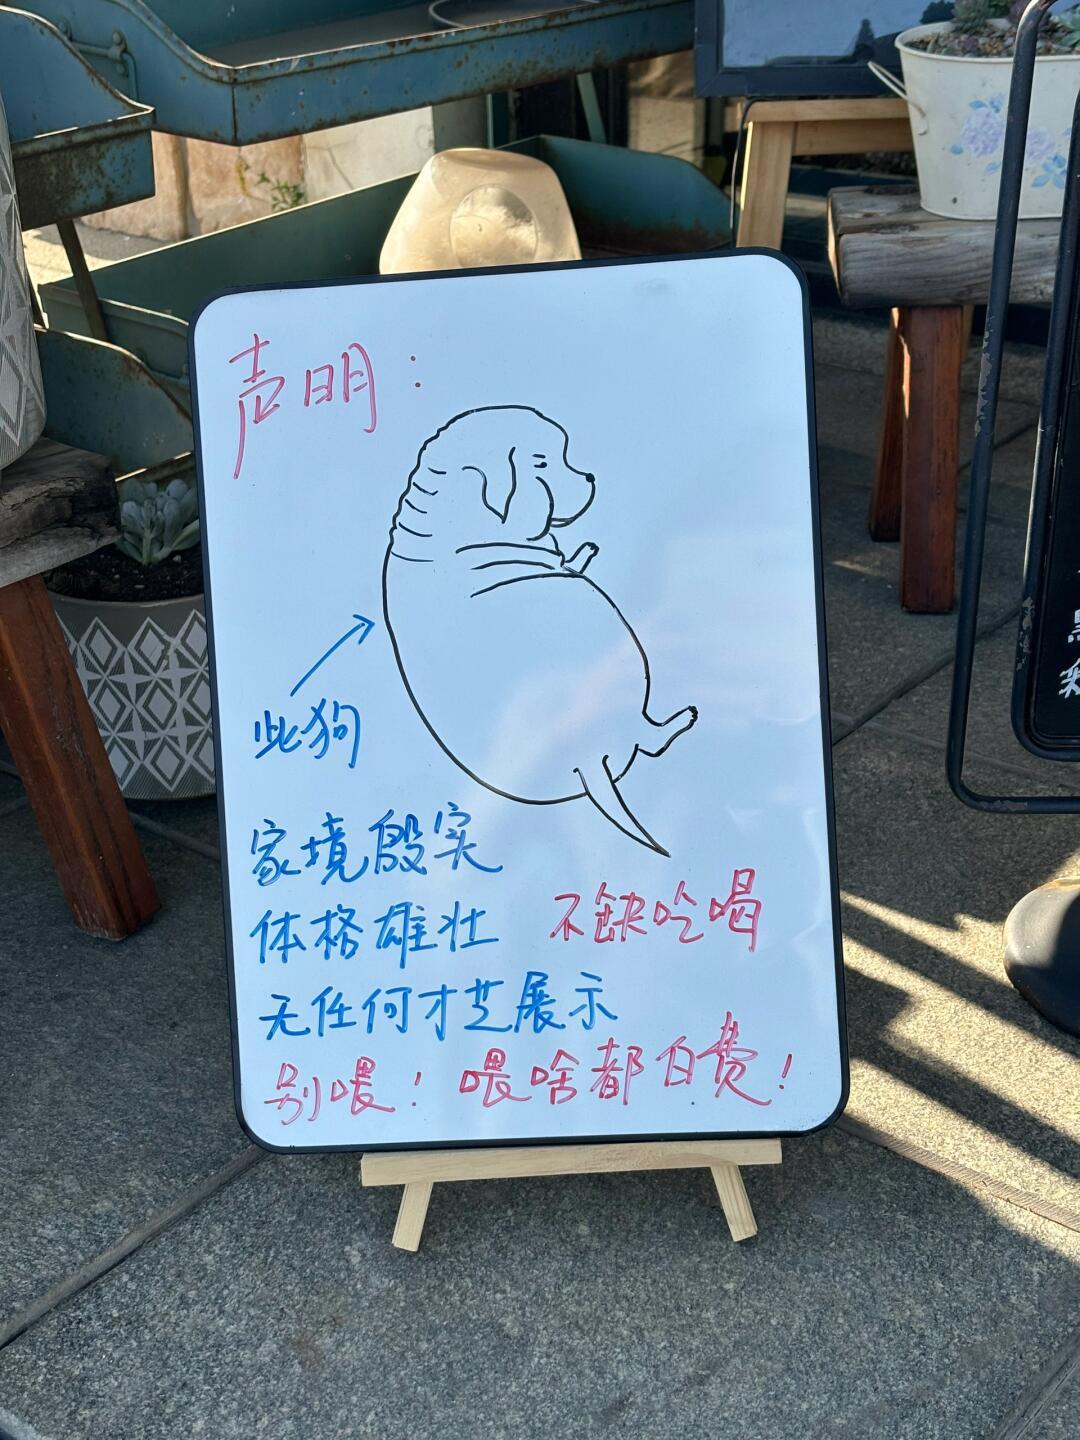 声明：
此狗
家境殷实
体格雄壮 不缺吃喝
无任何才艺展示
别喂！喂啥都白费！